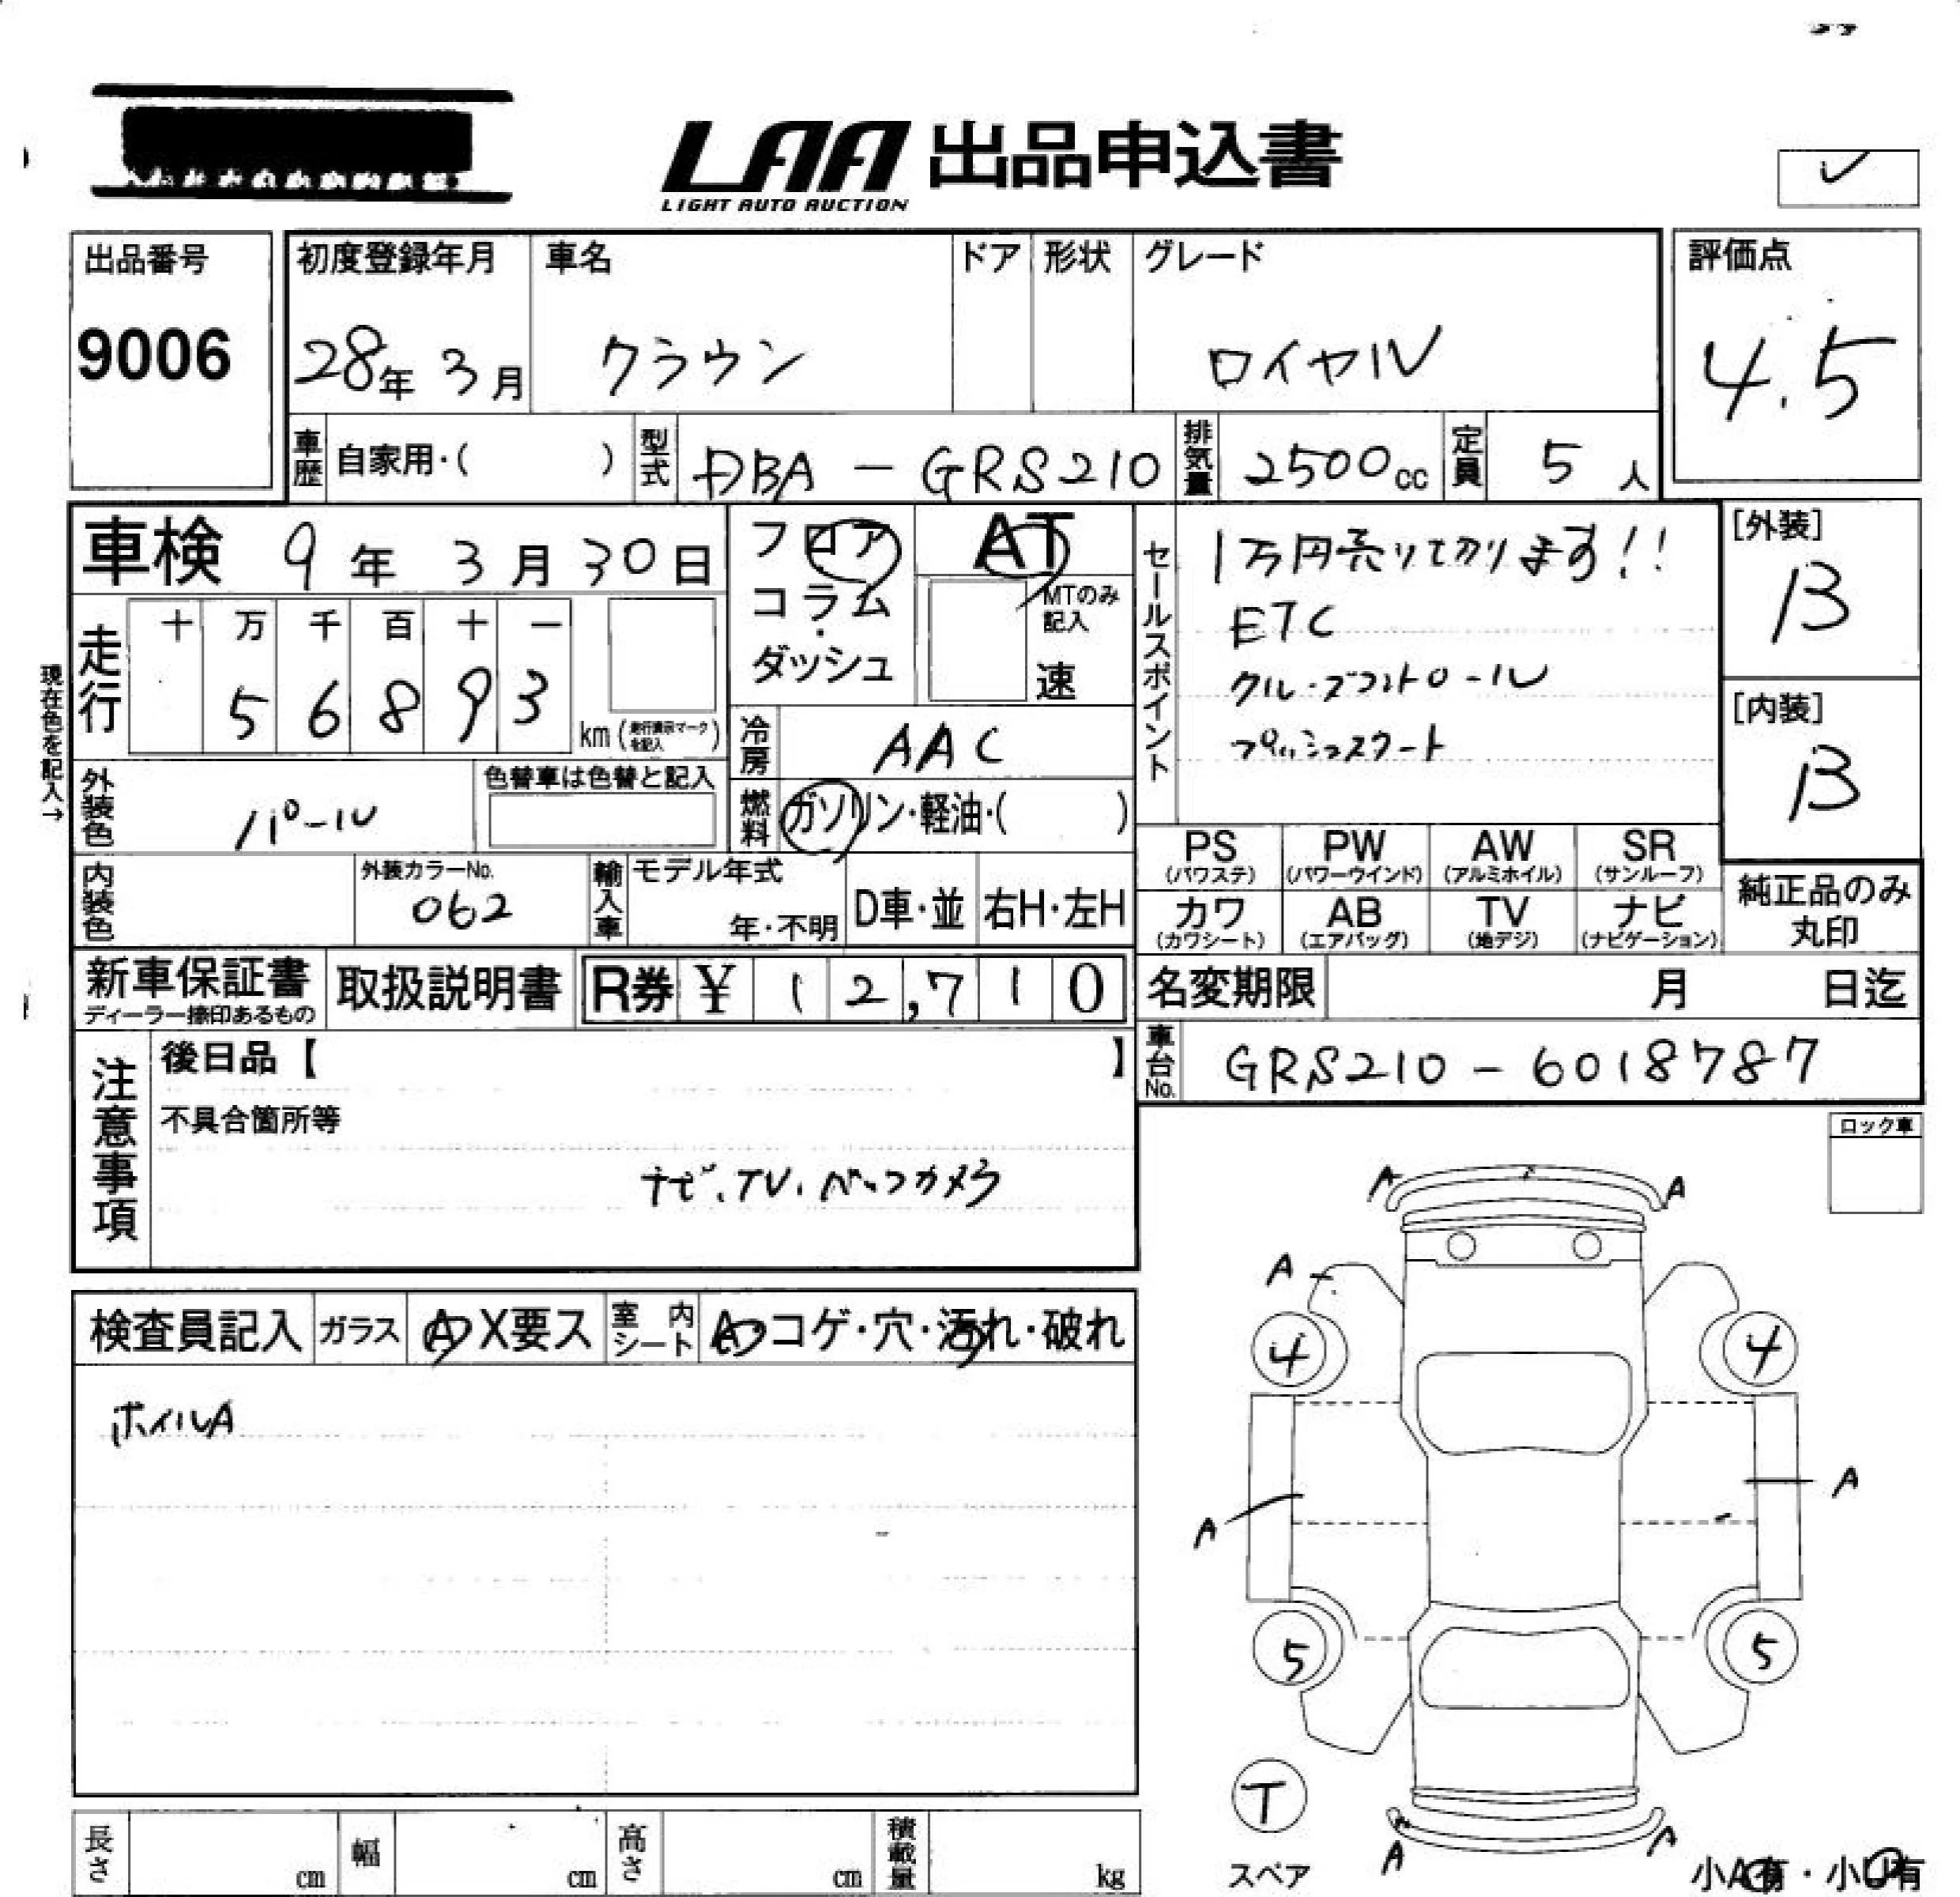 LAA 出品申込書
LIGHT AUTO AUCTION
出品番号
9006
初度登録年月
28年 3月
車名
クラウン
ドア
形状
グレード
ロイヤル
評価点
4.5
車歴 自家用・( )
型式 DBA-GRS210
排気量 2500cc
定員 5人
車検 9年 3月 30日
フロア
コラム
・
ダッシュ
AT
MTのみ
記入
速
セールスポイント
1万円売りきります!!
ETC
クルーズコントロール
プッシュスタート
[外装]
B
[内装]
B
現在色を記入→
走行
十 万 千 百 十 一
5 6 8 9 3
km(走行表示マークを記入)
冷房 AAC
燃料 ガソリン・軽油・( )
外装色 パール
色替車は色替と記入
内装色
外装カラーNo.
062
輸入車 モデル年式
年・不明
D車・並
右H・左H
PS
(パワステ)
PW
(パワーウインド)
AW
(アルミホイル)
SR
(サンルーフ)
カワ
(カワシート)
AB
(エアバッグ)
TV
(地デジ)
ナビ
(ナビゲーション)
純正品のみ
丸印
新車保証書
ディーラー捺印あるもの
取扱説明書
R券 ¥ 12,710
名変期限 月 日迄
車台No. GRS210-6018787
注意事項
後日品【 】
不具合箇所等
ナビ、TV、バックカメラ
ロック車
検査員記入
ガラス
A X要ス
室内シート
A・コゲ・穴・汚れ・破れ
ホイルA
A
A
A
4
4
A
A
5
5
T
スペア
A
小A有・小U有
長さ cm
幅 cm
高さ cm
積載量 kg